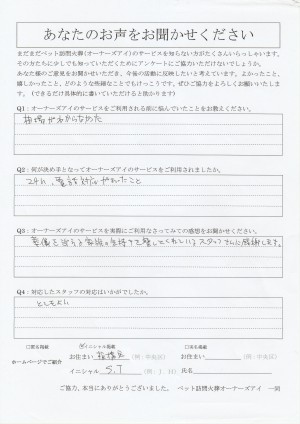 あなたのお声をお聞かせください
まだまだペット訪問火葬(オーナーズアイ)のサービスを知らない方がたくさんいらっしゃいます。
その方たちに少しでも知っていただくためにアンケートにご協力いただけないでしょうか。
あなた様のご意見をお聞かせいただき、今後の活動に反映したいと考えています。よかったこと、
嬉しかったこと、どのような些細なことでもけっこうです。ぜひご協力をよろしくお願いいたします。
(できるだけ具体的に書いていただけると助かります)
Q1:オーナーズアイのサービスをご利用される前に悩んでいたことをお教えください。
相場がわからなかった
Q2:何が決め手となってオーナーズアイのサービスをご利用されましたか。
24h、電話対応がやれたこと
Q3:オーナーズアイのサービスを実際にご利用なさってみての感想をお聞かせください。
スタッフさんに感謝します。
Q4:対応したスタッフの対応はいかがでしたか。
とてもよい
□匿名掲載 ☑イニシャル掲載 □実名掲載
ホームページでご紹介 お住まい 板橋区 (例:中央区) お住まい (例:中央区)
イニシャル S.T (例:J.H) 氏名
ご協力、本当にありがとうございました。 ペット訪問火葬オーナーズアイ 一同